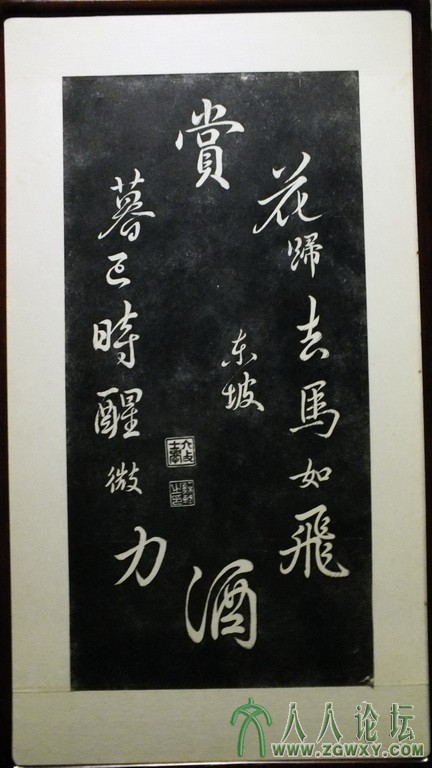 賞
花歸去馬如飛
酒
暮已時醒微力
东坡
人人论坛
www.zgwxy.com